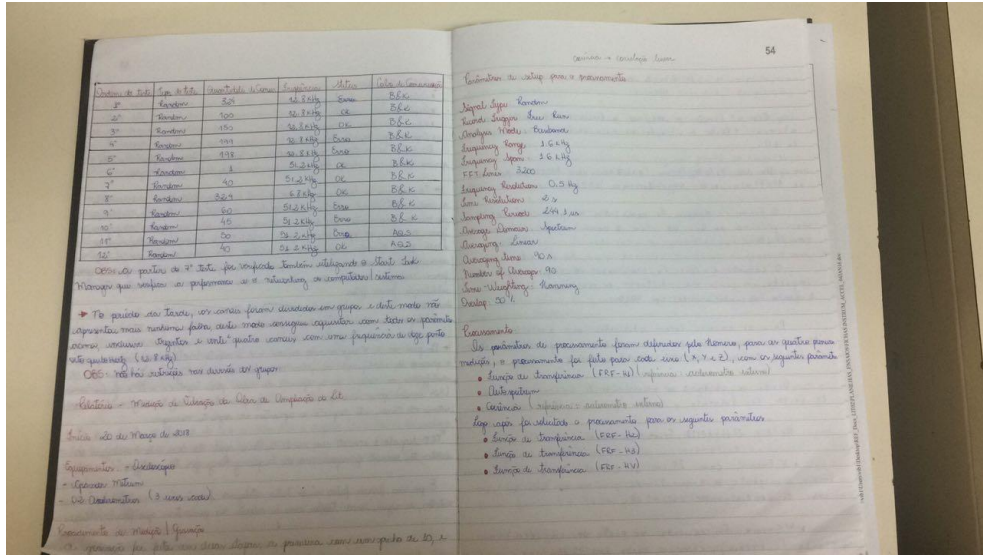 Ordem do teste Tipo do teste Quantidade de Canais Frequência Status Cabo de Comunicação
2º Random 324 12.8 KHz Erro B&K
2º Random 100 12.8 KHz OK B&K
3º Random 150 12.8 KHz OK B&K
4º Random 199 12.8 KHz Erro B&K
5º Random 198 12.8 KHz Erro B&K
6º Random 51.2 KHz OK B&K
7º Random 40 51.2 KHz OK B&K
8º Random 324 6.8 KHz OK B&K
9º Random 60 51.2 KHz Erro B&K
10º Random 45 51.2 KHz Erro B&K
11º Random 50 51.2 KHz Erro AQS
12º Random 40 51.2 KHz OK AQS
OBS: a partir do 7º teste foi verificado também utilizando o Start Task
Manager que verifica a performance e o networking do computador/sistema
No período da tarde, os canais foram divididos em grupos e deste modo não
apresentou mais nenhuma falha, deste modo consegue aquisitar com todos os parâmetros
acima, inclusive trezentos e vinte quatro canais com uma frequência de doze ponto
oito quilo hertz (12.8 KHz)
OBS: não há restrição nas divisões dos grupos
Relatório - Medição de Vibração da Obra de Ampliação do Lit
Início: 20 de Março de 2017
Equipamentos: - Osciloscópio
- Acelerômetros (3 eixos cada)
Procedimento de Medição / Gravação
A aquisição foi feita em duas etapas, a primeira com um ganho de 10, e
54
Coerência → correlação linear
Parâmetros de setup para o processamento
Signal Type: Random
Record Trigger: Free Run
Analysis Mode: Baseband
Frequency Range: 1.6 kHz
Frequency Span: 1.6 kHz
FFT Lines: 3200
Frequency Resolution: 0.5 Hz
Time Resolution: 2 s
Sampling Period: 244.1 us
Average Domain: Spectrum
Averaging: Linear
Averaging time: 90 s
Number of Averages: 90
Time Weighting: Hanning
Overlap: 50 %
Processamento
Os parâmetros de processamento foram definidos pelo Homero, para as quatro primeiras
medições, o processamento foi feito para cada eixo (X, Y e Z), com os seguintes parâmetros
• Função de transferência (FRF - H1) (referência: acelerômetro externo)
• Autospectrum
• Coerência (referência: acelerômetro externo)
Logo após foi solicitado o processamento para os seguintes parâmetros
• Função de transferência (FRF - H2)
• Função de transferência (FRF - H3)
• Função de transferência (FRF - HV)